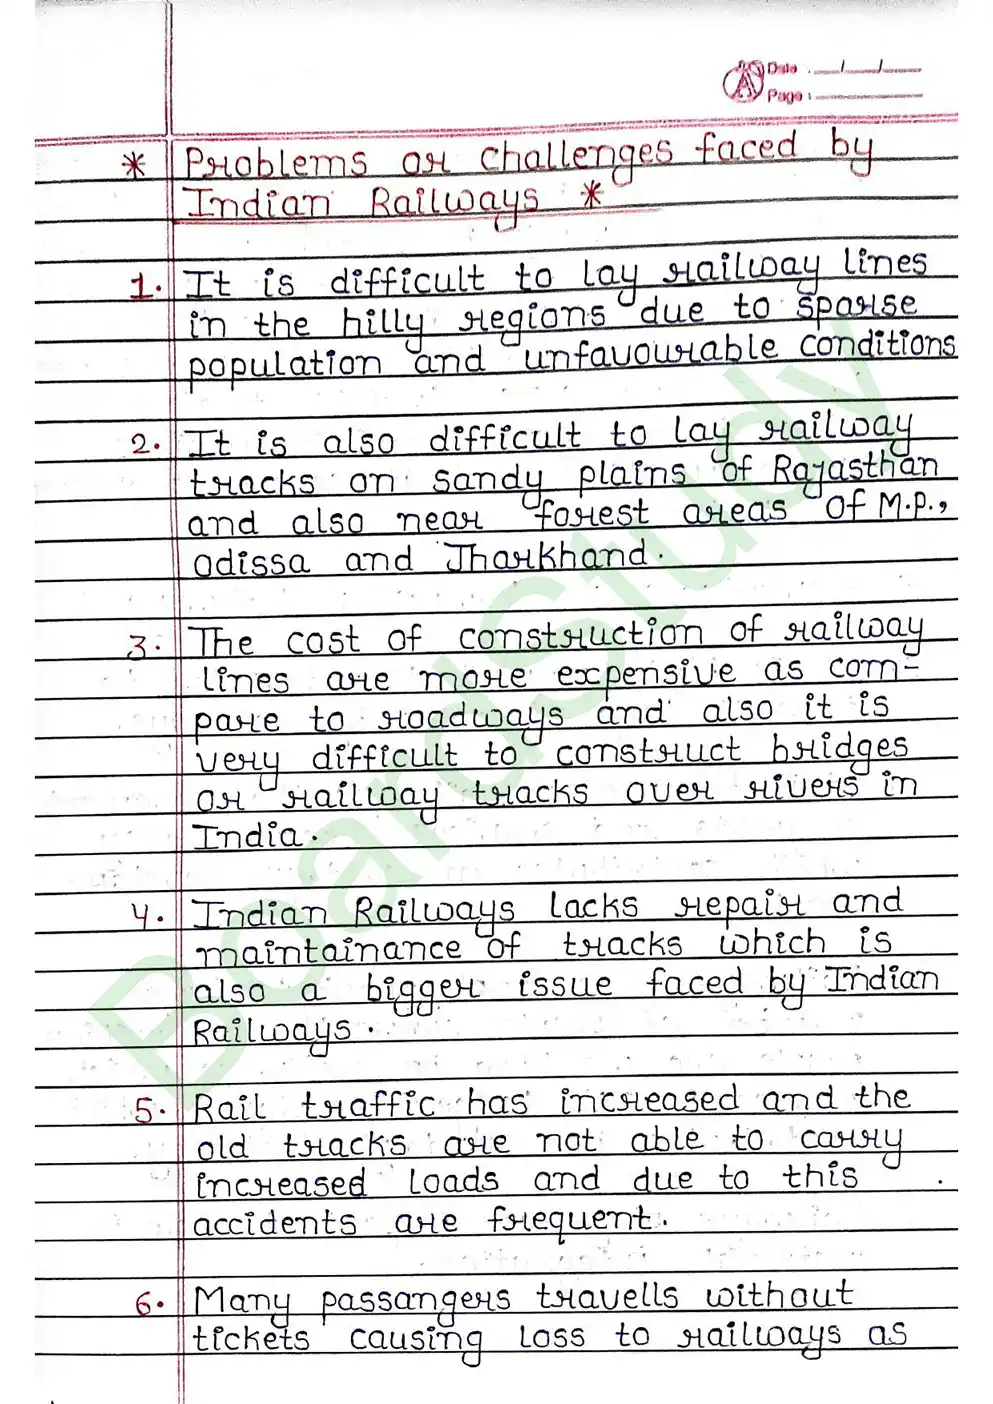 Date : __/__/__
Page : ______
* Problems or challenges faced by
Indian Railways *
1. It is difficult to lay railway lines
in the hilly regions due to sparse
population and unfavourable conditions
2. It is also difficult to lay railway
tracks on sandy plains of Rajasthan
and also near forest areas of M.P.,
Odissa and Jharkhand.
3. The cost of construction of railway
lines are more expensive as com-
pare to roadways and also it is
very difficult to construct bridges
or railway tracks over rivers in
India.
4. Indian Railways lacks repair and
maintainance of tracks which is
also a bigger issue faced by Indian
Railways.
5. Rail traffic has increased and the
old tracks are not able to carry
increased loads and due to this
accidents are frequent.
6. Many passangers travells without
tickets causing loss to railways as
BoardStudy